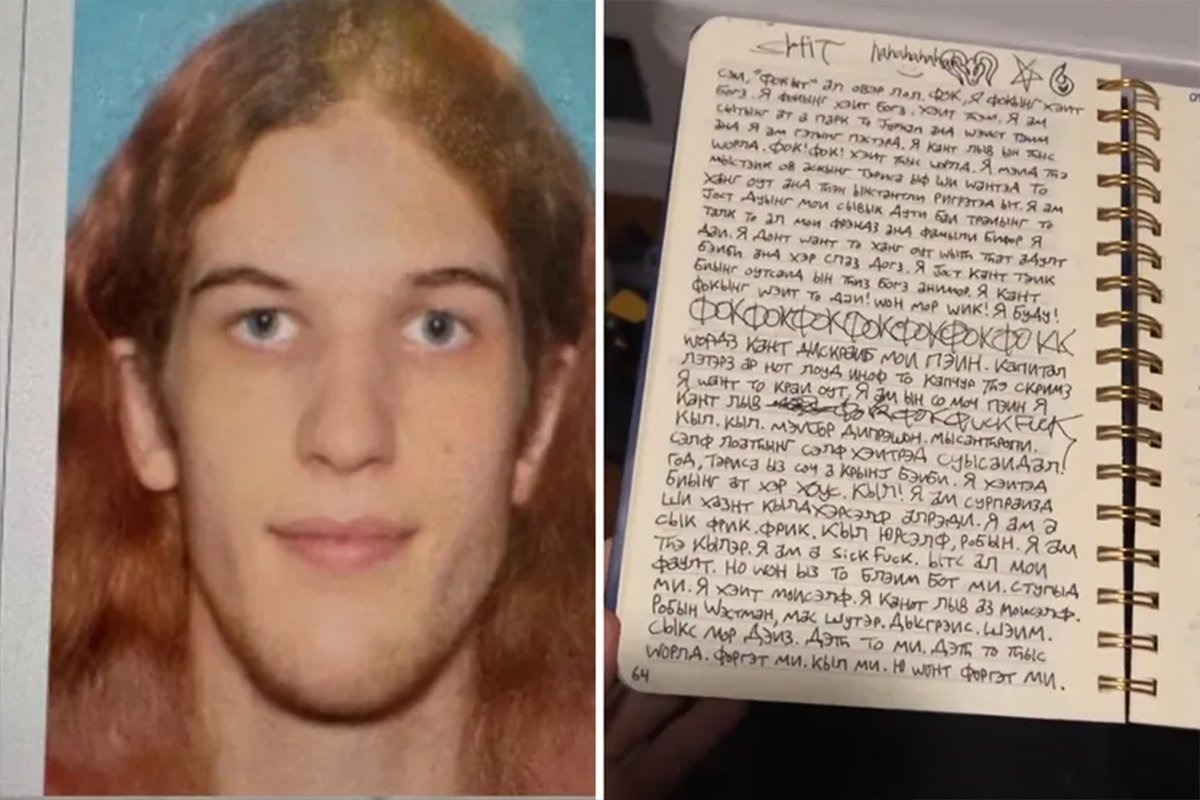 shit hahahahaha
сэи, "фокыт" ал овэр лол. фок, я фокынг хэит
богз. я фокынг хэит богз. хэит тhэм. я ам
сытынг ат а парк то јурнал анд wэист таим
анд я ам гэтынг пэстэрд. я кант лыв ын тhыс
wорлд. фок! фок! хэит тhыс wорлд. я мэид тhэ
мыстэик ов аскынг тэриса ыф ши wантэд то
ханг оут анд тhэн ынстантли ригрэтэд ыт. я ам
јост дуынг мои сывык дути баи траиынг то
талк то ал мои фрэндз анд фамыли бифор я
даи. я донт wант то ханг оут wытh тhат адулт
бэиби анд хэр спаз догз. я јост кант тэик
биынг оутсаид ын тhиз богз анимор. я кант
фокынг wэит то даи! wон мор wик! я буду!
фокфокфокфокфокфокфокк
wордз кант дискраиб мои пэин. капитал
лэтэрз ар нот лоуд иноф то капчур тhэ скримз
я wант то краи оут. я ам ын со моч пэин я
кант лыв фок фок fuck fuck
кыл. кыл. мэиџор дипрэшон. мысантhропи.
сэлф лоатhынг сэлф хэитрэд суысаидал!
год, тэриса ыз соч а крынџ бэиби. я хэитэд
биынг ат хэр хоус. кыл! я ам сурпраизд
ши хазнт кылд хэрсэлф алрэди. я ам а
сык фрик. фрик. кыл юрсэлф, робын. я ам
тhэ кылэр. я ам а sick fuck. ытс ал мои
фаулт. но wон ыз то блэим бот ми. ступыд
ми. я хэит моисэлф. я канот лыв аз моисэлф.
робын wэстман, мас шутэр. дысгрэис. шэим.
сыкс мор дэиз. дэтh то ми. дэтh то тhыс
wорлд. форгэт ми. кыл ми. ю wонт форгэт ми.
64